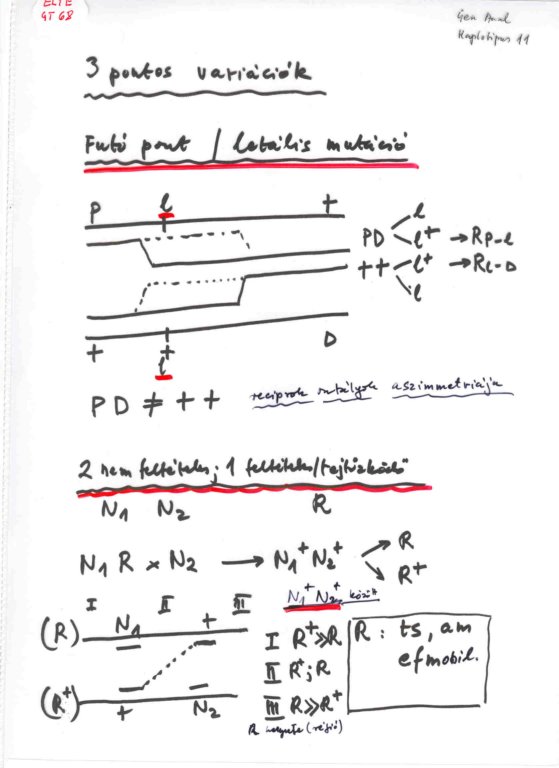 ELTE
GT 68
Gen Anal
Haplotipus 11
3 pontos variációk
Futó pont / letális mutáció
P l +
PD l
l+ → RP-l
++ l+ → Rl-D
l
+ + D
l
PD ≠ ++ reciprok osztályok aszimmetriája
2 nem feltételes; 1 feltételes/rejtőzködő
N1 N2 R
N1 R × N2 → N1+ N2+ R
R+
I II III N1+ N2+ között
(R) N1 + I R+≫R R: ts, am
II R+; R efmobil.
(R+) + N2 III R≫R+
R helyzete (régió)